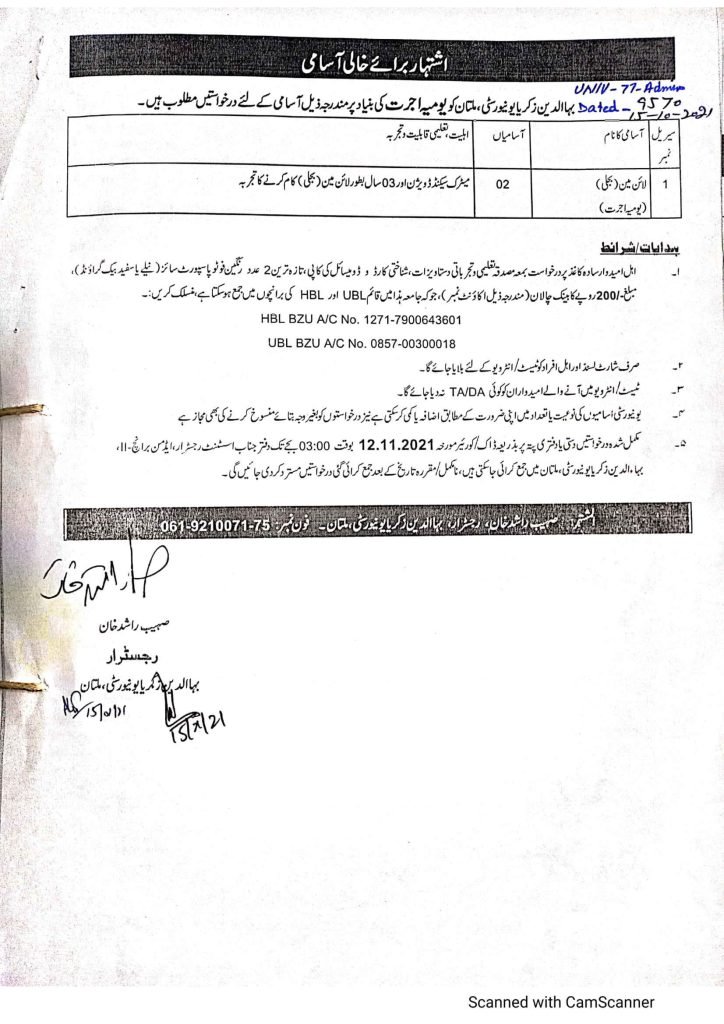 اشتہار برائے خالی آسامی
UNIV-77-Admn
9570
بہاالدین زکریا یونیورسٹی، ملتان کو یومیہ اجرت کی بنیاد پر مندرجہ ذیل آسامی کے لئے درخواستیں مطلوب ہیں۔
Dated - 15-10-2021
سیریل نمبر | آسامی کا نام | آسامیاں | اہلیت، تعلیمی قابلیت و تجربہ
1 | لائن مین (بجلی) (یومیہ اجرت) | 02 | میٹرک سیکنڈ ڈویژن اور 03 سال بطور لائن مین (بجلی) کام کرنے کا تجربہ
ہدایات/شرائط
۱۔ اہل امیدوار سادہ کاغذ پر درخواست بمعہ مصدقہ تعلیمی و تجرباتی دستاویزات، شناختی کارڈ و ڈومیسائل کی کاپی، تازہ ترین 2 عدد رنگین فوٹو پاسپورٹ سائز (نیلے یا سفید بیک گراؤنڈ)،
مبلغ -/200 روپے کا بینک چالان (مندرجہ ذیل اکاؤنٹ نمبر)، جو کہ جامعہ ہذا میں قائم UBL اور HBL کی برانچوں میں جمع ہو سکتا ہے، منسلک کریں:۔
HBL BZU A/C No. 1271-7900643601
UBL BZU A/C No. 0857-00300018
۲۔ صرف شارٹ لسٹڈ اور اہل افراد کو ٹیسٹ/انٹرویو کے لئے بلایا جائے گا۔
۳۔ ٹیسٹ/انٹرویو میں آنے والے امیدواران کو کوئی TA/DA نہ دیا جائے گا۔
۴۔ یونیورسٹی آسامیوں کی نوعیت یا تعداد میں اپنی ضرورت کے مطابق اضافہ یا کمی کر سکتی ہے نیز درخواستوں کو بغیر وجہ بتائے منسوخ کرنے کی بھی مجاز ہے
۵۔ مکمل شدہ درخواستیں دستی یا دفتری پتہ پر بذریعہ ڈاک/کورئیر مورخہ 12.11.2021 بوقت 03:00 بجے تک دفتر جناب اسسٹنٹ رجسٹرار، ایڈمن برانچ-II،
بہاءالدین زکریا یونیورسٹی، ملتان میں جمع کرائی جا سکتی ہیں، نامکمل/مقررہ تاریخ کے بعد جمع کرائی گئی درخواستیں مسترد کر دی جائیں گی۔
المشتہر: صہیب راشد خان، رجسٹرار، بہاالدین زکریا یونیورسٹی، ملتان۔ فون نمبر: 061-9210071-75
صہیب راشد خان
رجسٹرار
بہاالدین زکریا یونیورسٹی، ملتان
Scanned with CamScanner